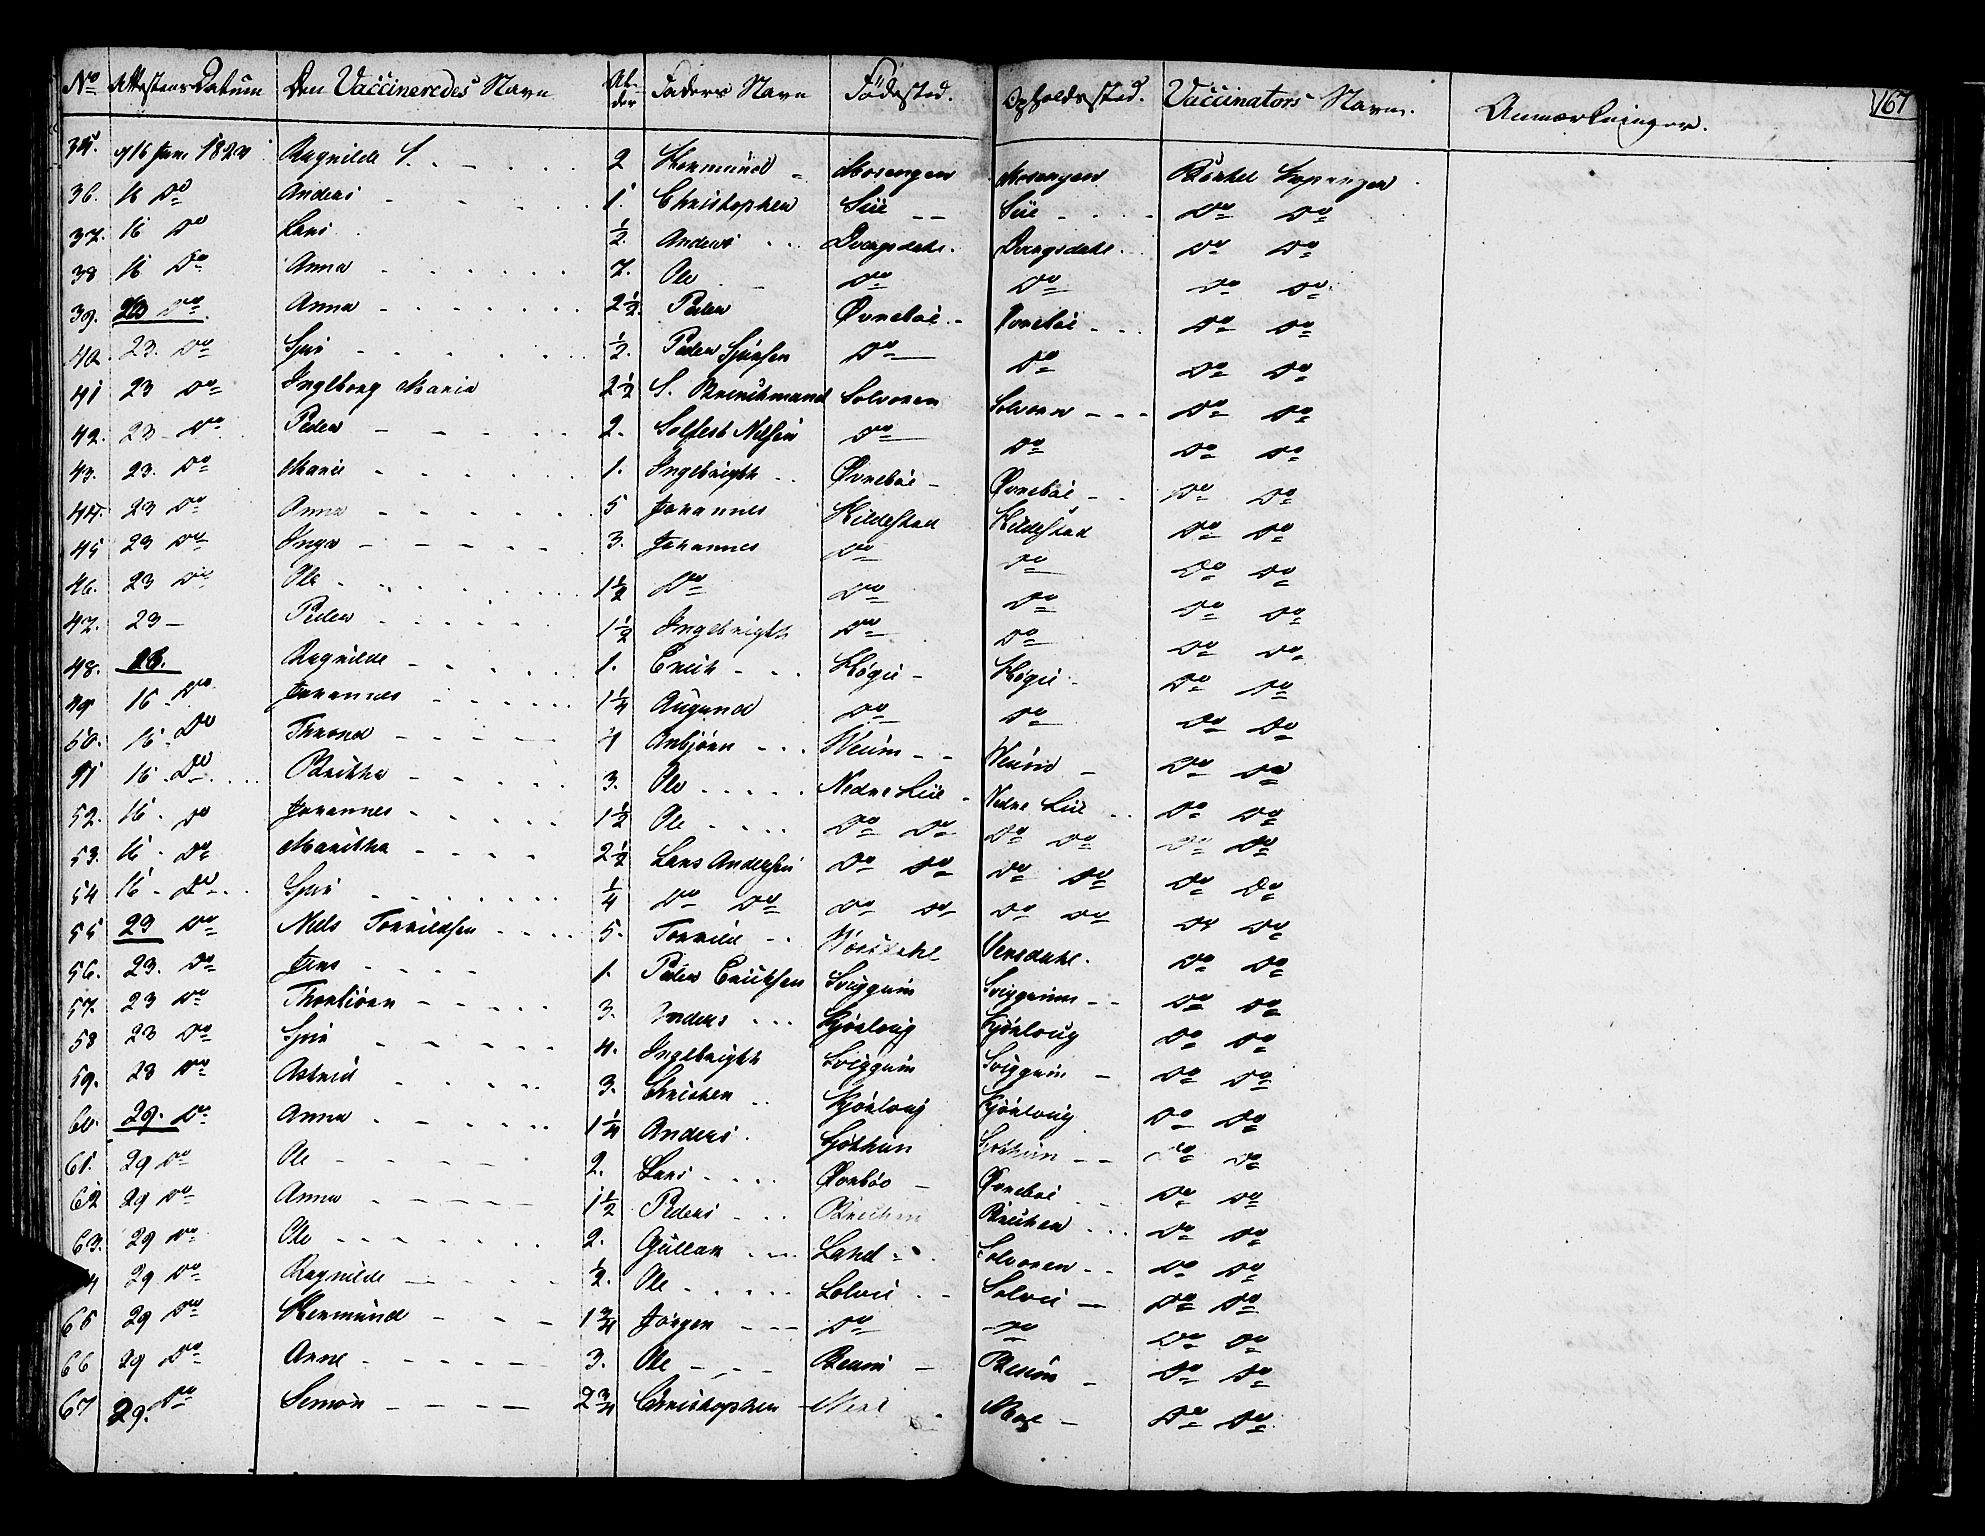 167
No Attestens Datum Den Vaccineredes Navn Al- der Faders Navn Fødested. Opholdssted. Vaccinators Navn. Anmærkninger.
35. 16 Juni Ragnilde 2 Hermund Mosengen Mosengen
36. 16 Do Anders 1. Christophen Lie Lie Do Do
37. 16 Do Lars ½ Anders Dvergsdahl. Dvergsdahl Do Do
38 16 Do Anna 7. Ole Do Do Do Do
39. Do Anna 2½ Peder Øvrebøe Øvrebøe Do Do
40. 23. Do Siur ½. Peder Siursen Do Do Do Do
41 23 Do Ingeborg Maria 2½ S. Solvoren Solvoren Do Do
42. 23 Do Peder 2. Solfest Nilsen Do Do Do Do
43. 23. Do Marie 1. Ingebrigth Øvrebøe Øvrebøe Do Do
44. 23 Do Anna 5 Johannes Kildestad Kildestad Do Do
45 23 Do Inga 3. Johannes Do Do Do Do
46. 23 Do Ole 1½ Do Do Do Do Do
47. 23 Peder 1½ Ingebrigth Do Do Do Do
48. 23. Ragnilde 1. Erich Høgie Høgie Do Do
49 16 Do Johannes 1¼ Augund Do Do Do Do
50. 16. Do Thrond 4 Anbjørn Do Do
51 16 Do Britha 3. Ole Nedre Lie Nedre Lie Do Do
52. 16. Do Johannes 1½ Ole Do Do Do Do Do Do
53. 16. Do Maritha 2½ Lars Andersen Do Do Do Do Do Do
54 16. Do Siur ¼ Do Do Do Do Do Do Do Do
55 29 Do Niels Torkildsen 5. Torkild Do Do
56. 23. Do Jens 1. Peder Erichsen Sviggum Sviggum Do Do
57. 23 Do Thorbiørn 3. Anders Kjørloug Kjørloug Do Do
58 23 Do Siur 4. Ingebrigth Sviggum Sviggum Do Do
59. 23 Do Astrid 3. Christen Kjørloug Kjørloug Do Do
60. 29. Do Anna 1¼ Anders Do Do
61. 29 Do Ole 2. Lars Øvrebøe Øvrebøe Do Do
62 29 Do Anna 1½ Peder Do Do
63. 29 Do Ole 2. Gullak Land Solvoren Do Do
29 Do Ragnilde ½. Ole Solvie Solvie Do Do
65 29 Do Hermund 1¾ Jørgen Do Do Do Do
66 29 Do Anne 3. Ole Do Do
67 29. Do Semon 2¾ Christophen Moe Do Do